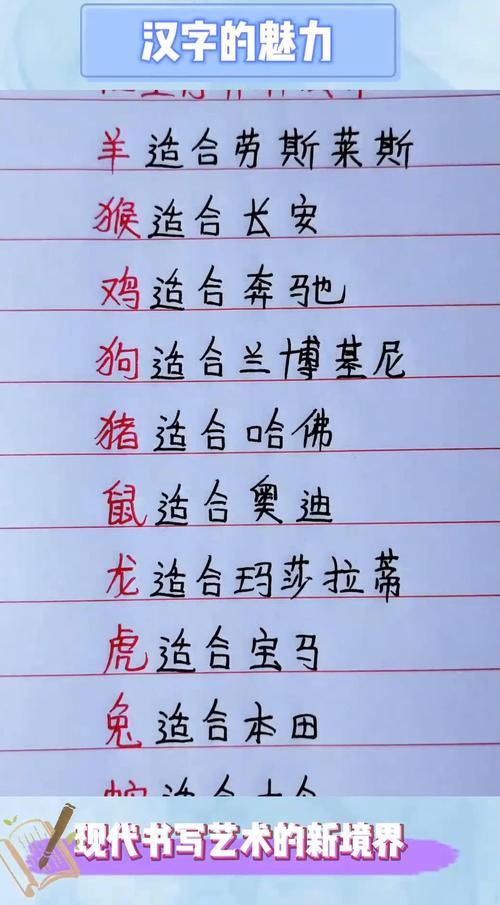 汉字的魅力
羊适合劳斯莱斯
猴适合长安
鸡适合奔驰
狗适合兰博基尼
猪适合哈佛
鼠适合奥迪
龙适合玛莎拉蒂
虎适合宝马
兔适合本田
蛇适合大众
现代书写艺术的新境界